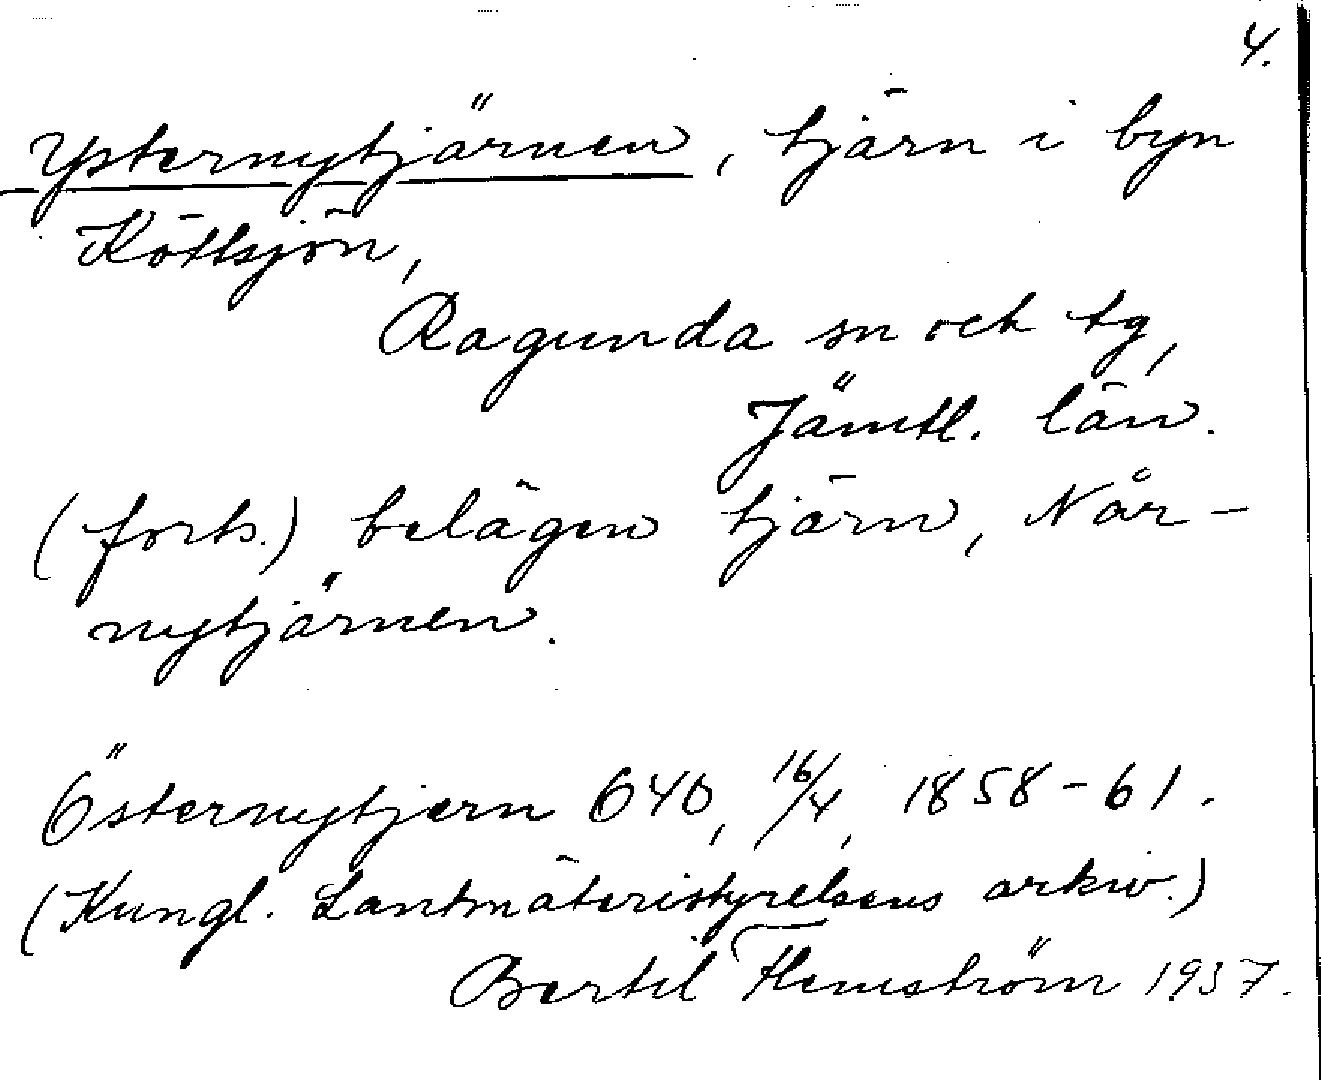 4.
Ysternytjärnen, tjärn i byn
Köttsjön,
Ragunda sn och tg,
Jämtl. län.
(forts.) belägen tjärn, Når-
nytjärnen.
Östernytjern 640, 16/4, 1858-61.
(Kungl. Lantmäteristyrelsens arkiv.)
Bertil Flemström 1937.